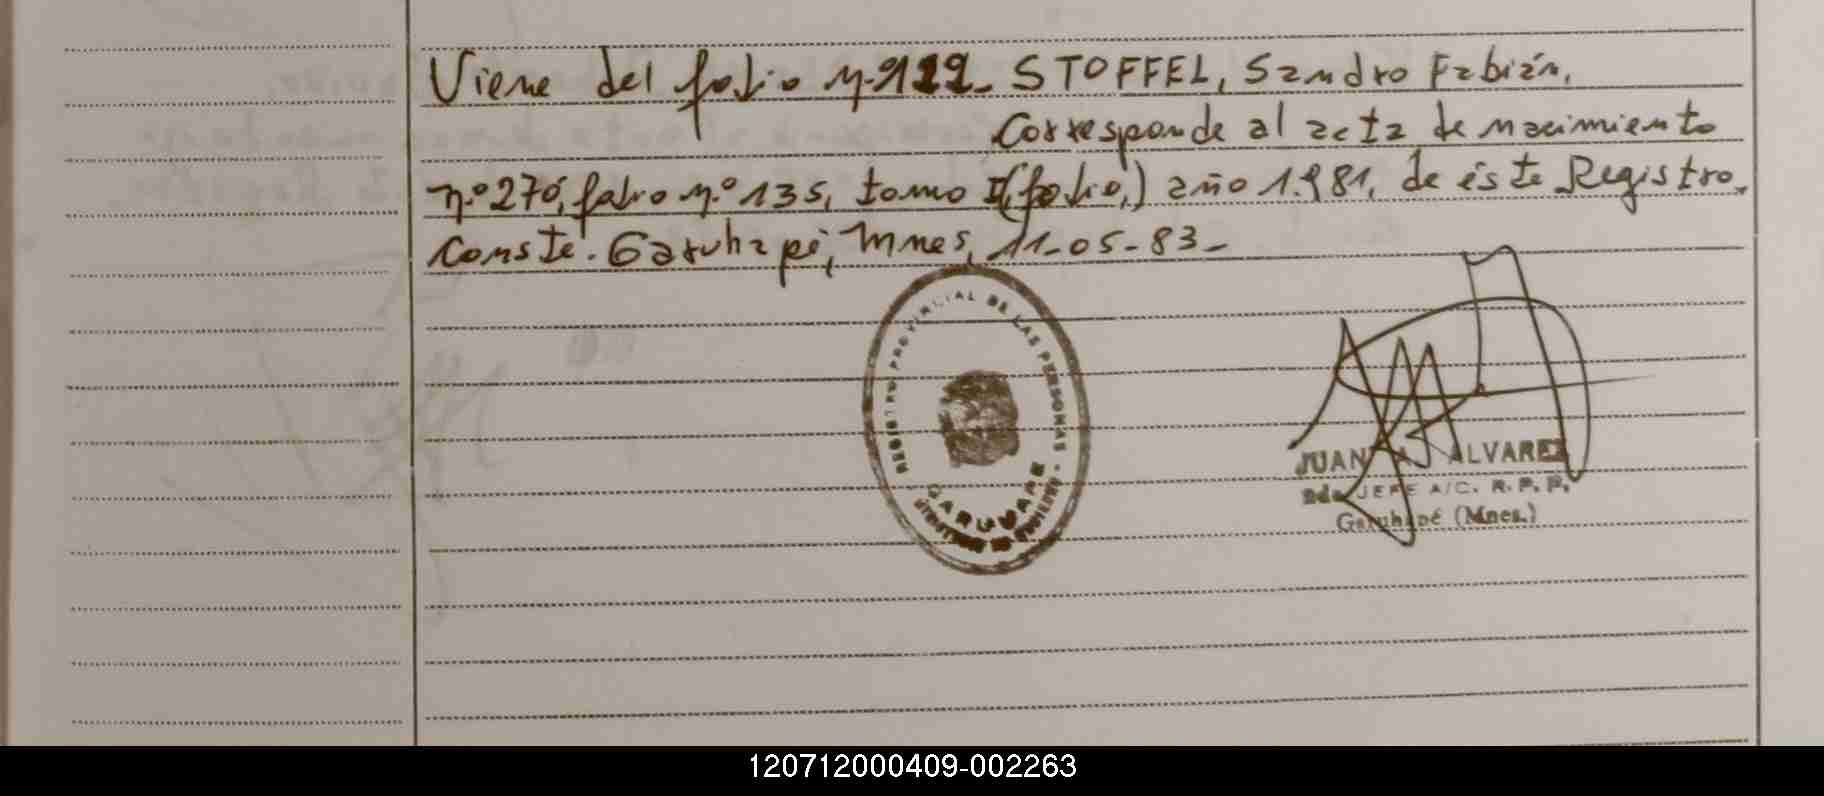 Viene del folio nº 122_ STOFFEL, Sandro Fabián.
Corresponde al acta de nacimiento
n.º 270, folio n.º 135, tomo I (folio,) año 1.981, de éste Registro.
Conste. Garuhapé, Mnes, 11-05-83_
REGISTRO PROVINCIAL DE LAS PERSONAS
GARUHAPE
JUAN ALVAREZ
2do JEFE A/C. R. P. P.
Garuhapé (Mnes.)
120712000409-002263